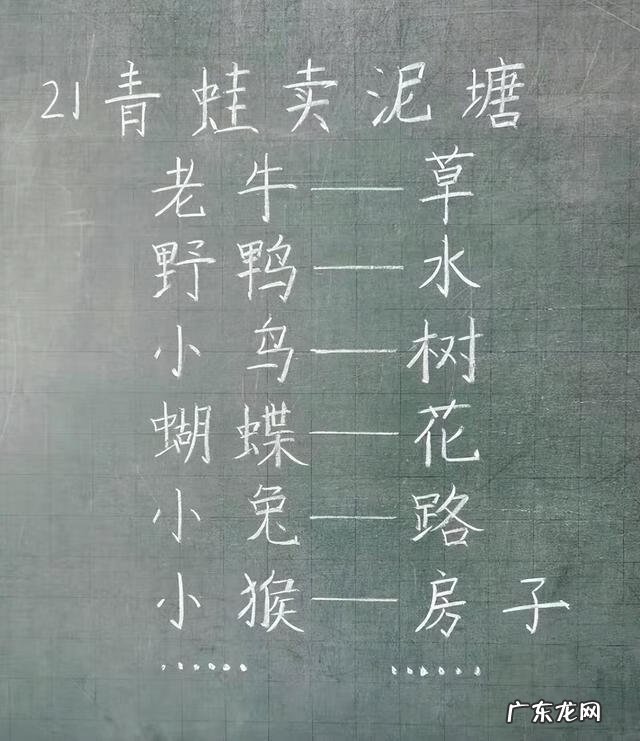 21 青蛙卖泥塘
老牛——草
野鸭——水
小鸟——树
蝴蝶——花
小兔——路
小猴——房子
…… ……
广东龙网